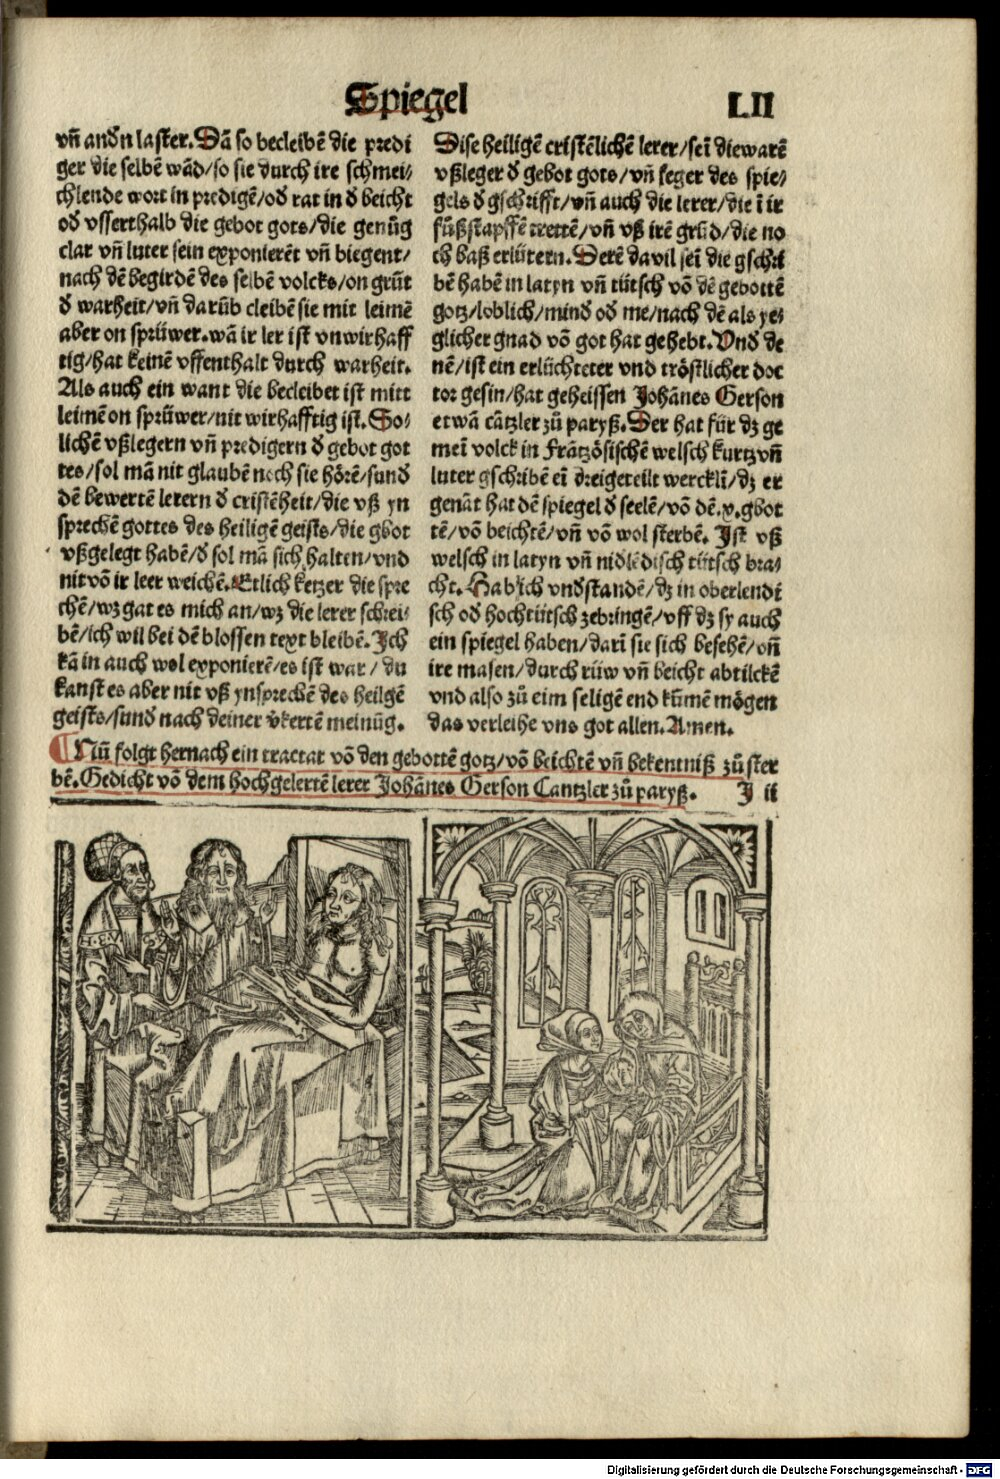 Spiegel
LII
vñ andn laster. Dā so becleibē die predi
ger die selbē wād/so sie durch ire schmei/
chlende wort in predigē/od rat in d beicht
od vsserthalb die gebot gots/die genůg
clar vñ luter sein exponierēt vñ biegent/
nach dē begirdē des selbē volcks/on grūt
d warheit/vñ darūb cleibē sie mit leimē
aber on sprüwer. wā ir ler ist vnwirhaff
tig/hat keinē vffenthalt durch warheit.
Als auch ein want die becleibet ist mitt
leimē on sprüwer/nit wirhafftig ist. So/
lichē vßlegern vñ predigern d gebot got
tes/sol mā nit glaubē noch sie hörē/sund
dē bewertē lerern d cristēheit/die vß yn
sprechē gottes des heiligē geists/die gbot
vßgelegt habē/d sol mā sich halten/vnd
nit vō ir leer weichē. Etlich ketzer die spre
chē/wz gat es mich an/wz die lerer schrei/
bē/ich wil bei dē blossen text bleibē. Ich
kā in auch wol exponierē/es ist war/du
kanst es aber nit vß ynsprechē des heilgē
geists/sund nach deiner vkertē meinūg.
Dise heiligē cristēlichē lerer/seī die warē
vßleger d gebot gots/vñ feger des spie/
gels d gschrifft/vñ auch die lerer/die ī ir
fůßstapffē trettē/vñ vß irē grūd/die no
ch baß erlütern. Derē da vil seī die gschri
bē habē in latyn vñ tütsch vō dē gebottē
gotz/loblich/mind od me/nach dē als ye/
glicher gnad vō got hat gehebt. Vnd de
nē/ist ein erlüchteter vnd tröstlicher doc
tor gesin/hat geheissen Johānes Gerson
etwā cātzler zů paryß. Der hat für dz ge
meī volck in Frātzösischē welsch kurtz vñ
luter gschribē eī dreigeteilt wercklī/dz er
genāt hat dē spiegel d seelē/vō dē .x. gbot
tē/vō beichtē/vñ vō wol sterbē. Ist vß
welsch in latyn vñ nidlēdisch tütsch bra/
cht. Hab ich vndstandē/dz in oberlendi
sch od hochtütsch zebringē/vff dz sy auch
ein spiegel haben/darī sie sich besehē/vñ
ire masen/durch rüw vñ beicht abtilckē
vnd also zů eim seligē end kūmē mögen
das verleihe vns got allen. Amen.
¶ Nū folgt hernach ein tractat vō den gebottē gotz/vō beichtē vñ bekentniß zů ster
bē. Gedicht vō dem hochgelertē lerer Johānes Gerson Cantzler zů paryß.
J ii
Digitalisierung gefördert durch die Deutsche Forschungsgemeinschaft - DFG